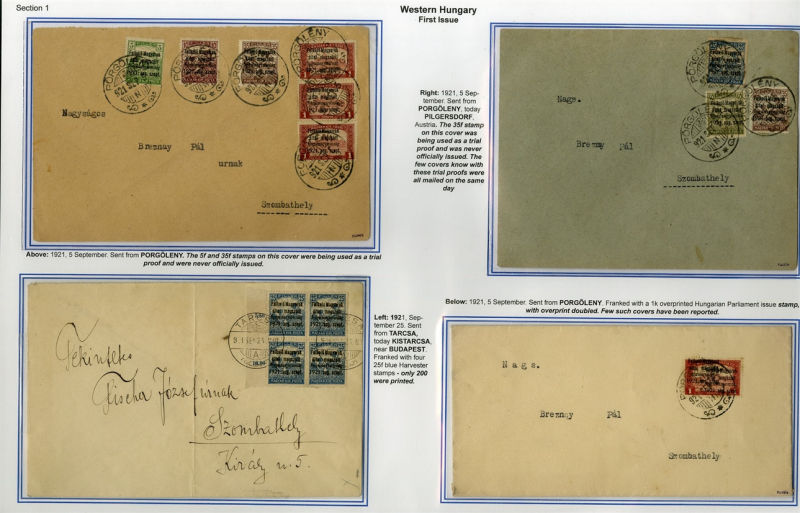 Section 1
Western Hungary
First Issue
Nagyságos
Breznay Pál
urnak
Szombathely
Above: 1921, 5 September. Sent from PORGÖLENY. The 5f and 35f stamps on this cover were being used as a trial
proof and were never officially issued.
Right: 1921, 5 Sep-
tember. Sent from
PORGÖLENY, today
PILGERSDORF,
Austria. The 35f stamp
on this cover was
being used as a trial
proof and was never
officially issued. The
few covers know with
these trial proofs were
all mailed on the same
day
Nags.
Brezney Pál
Szombathely
Tekintetes
Fischa Józsefnének
Szombathely
Király u. 5.
Left: 1921, Sep-
tember 25. Sent
from TARCSA,
today KISTARCSA,
near BUDAPEST.
Franked with four
25f blue Harvester
stamps - only 200
were printed.
Below: 1921, 5 September. Sent from PORGÖLENY. Franked with a 1k overprinted Hungarian Parliament issue stamp,
with overprint doubled. Few such covers have been reported.
Nags.
Breznay Pál
Szombathely